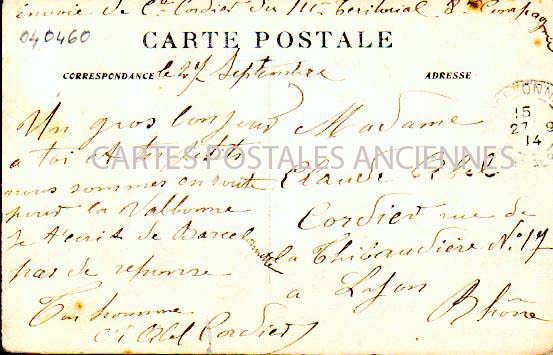 envoie de Cordier du 111e Teritorial 8e Compagnie
040460
CARTE POSTALE
CORRESPONDANCE
ADRESSE
le 27 Septembre
Un gros bonjour
a toi et
nous sommes en route
pour la Valbonne
Je t'ecrit de Barcelonnette
pas de reponse
Ton homme
Abel Cordier
Madame
Claude
Cordier rue de
la Thibaudière No 17
a Lyon
Rhône
15
27 9
14
CARTES POSTALES ANCIENNES